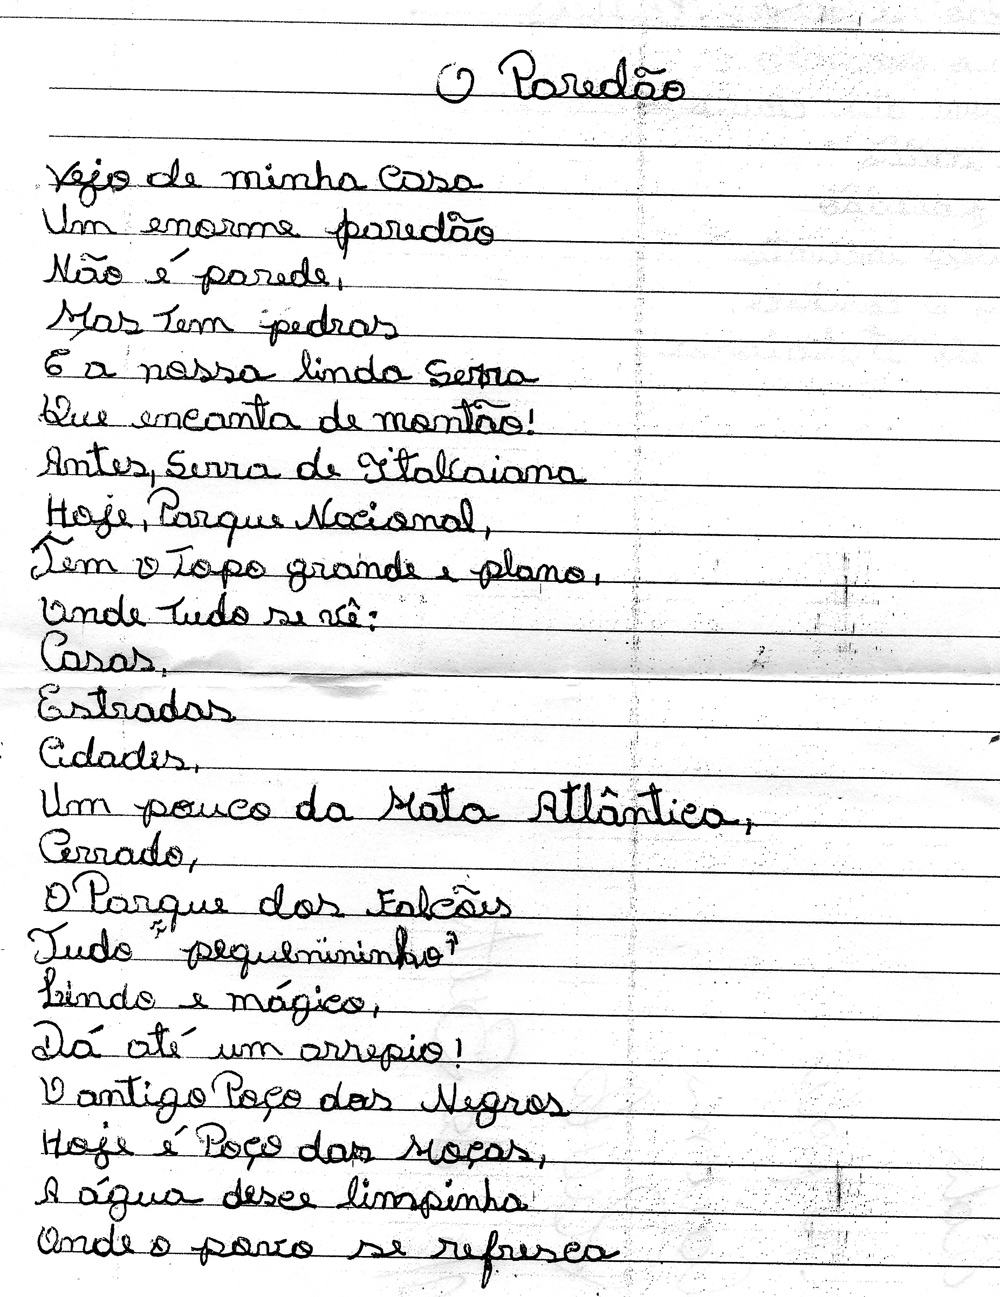 O Paredão
Vejo de minha casa
Um enorme paredão
Não é parede,
Mas tem pedras
É a nossa linda Serra
Que encanta de montão!
Antes, Serra de Itabaiana
Hoje, Parque Nacional,
Tem o Topo grande e plano,
Onde tudo se vê:
Casas,
Estradas
Cidades,
Um pouco da Mata Atlântica,
Cerrado,
O Parque dos Falcões
Tudo "pequenininho"
Lindo e mágico,
Dá até um arrepio!
O antigo Poço dos Negros
Hoje é Poço das Moças,
A água desce limpinha
Onde o povo se refresca